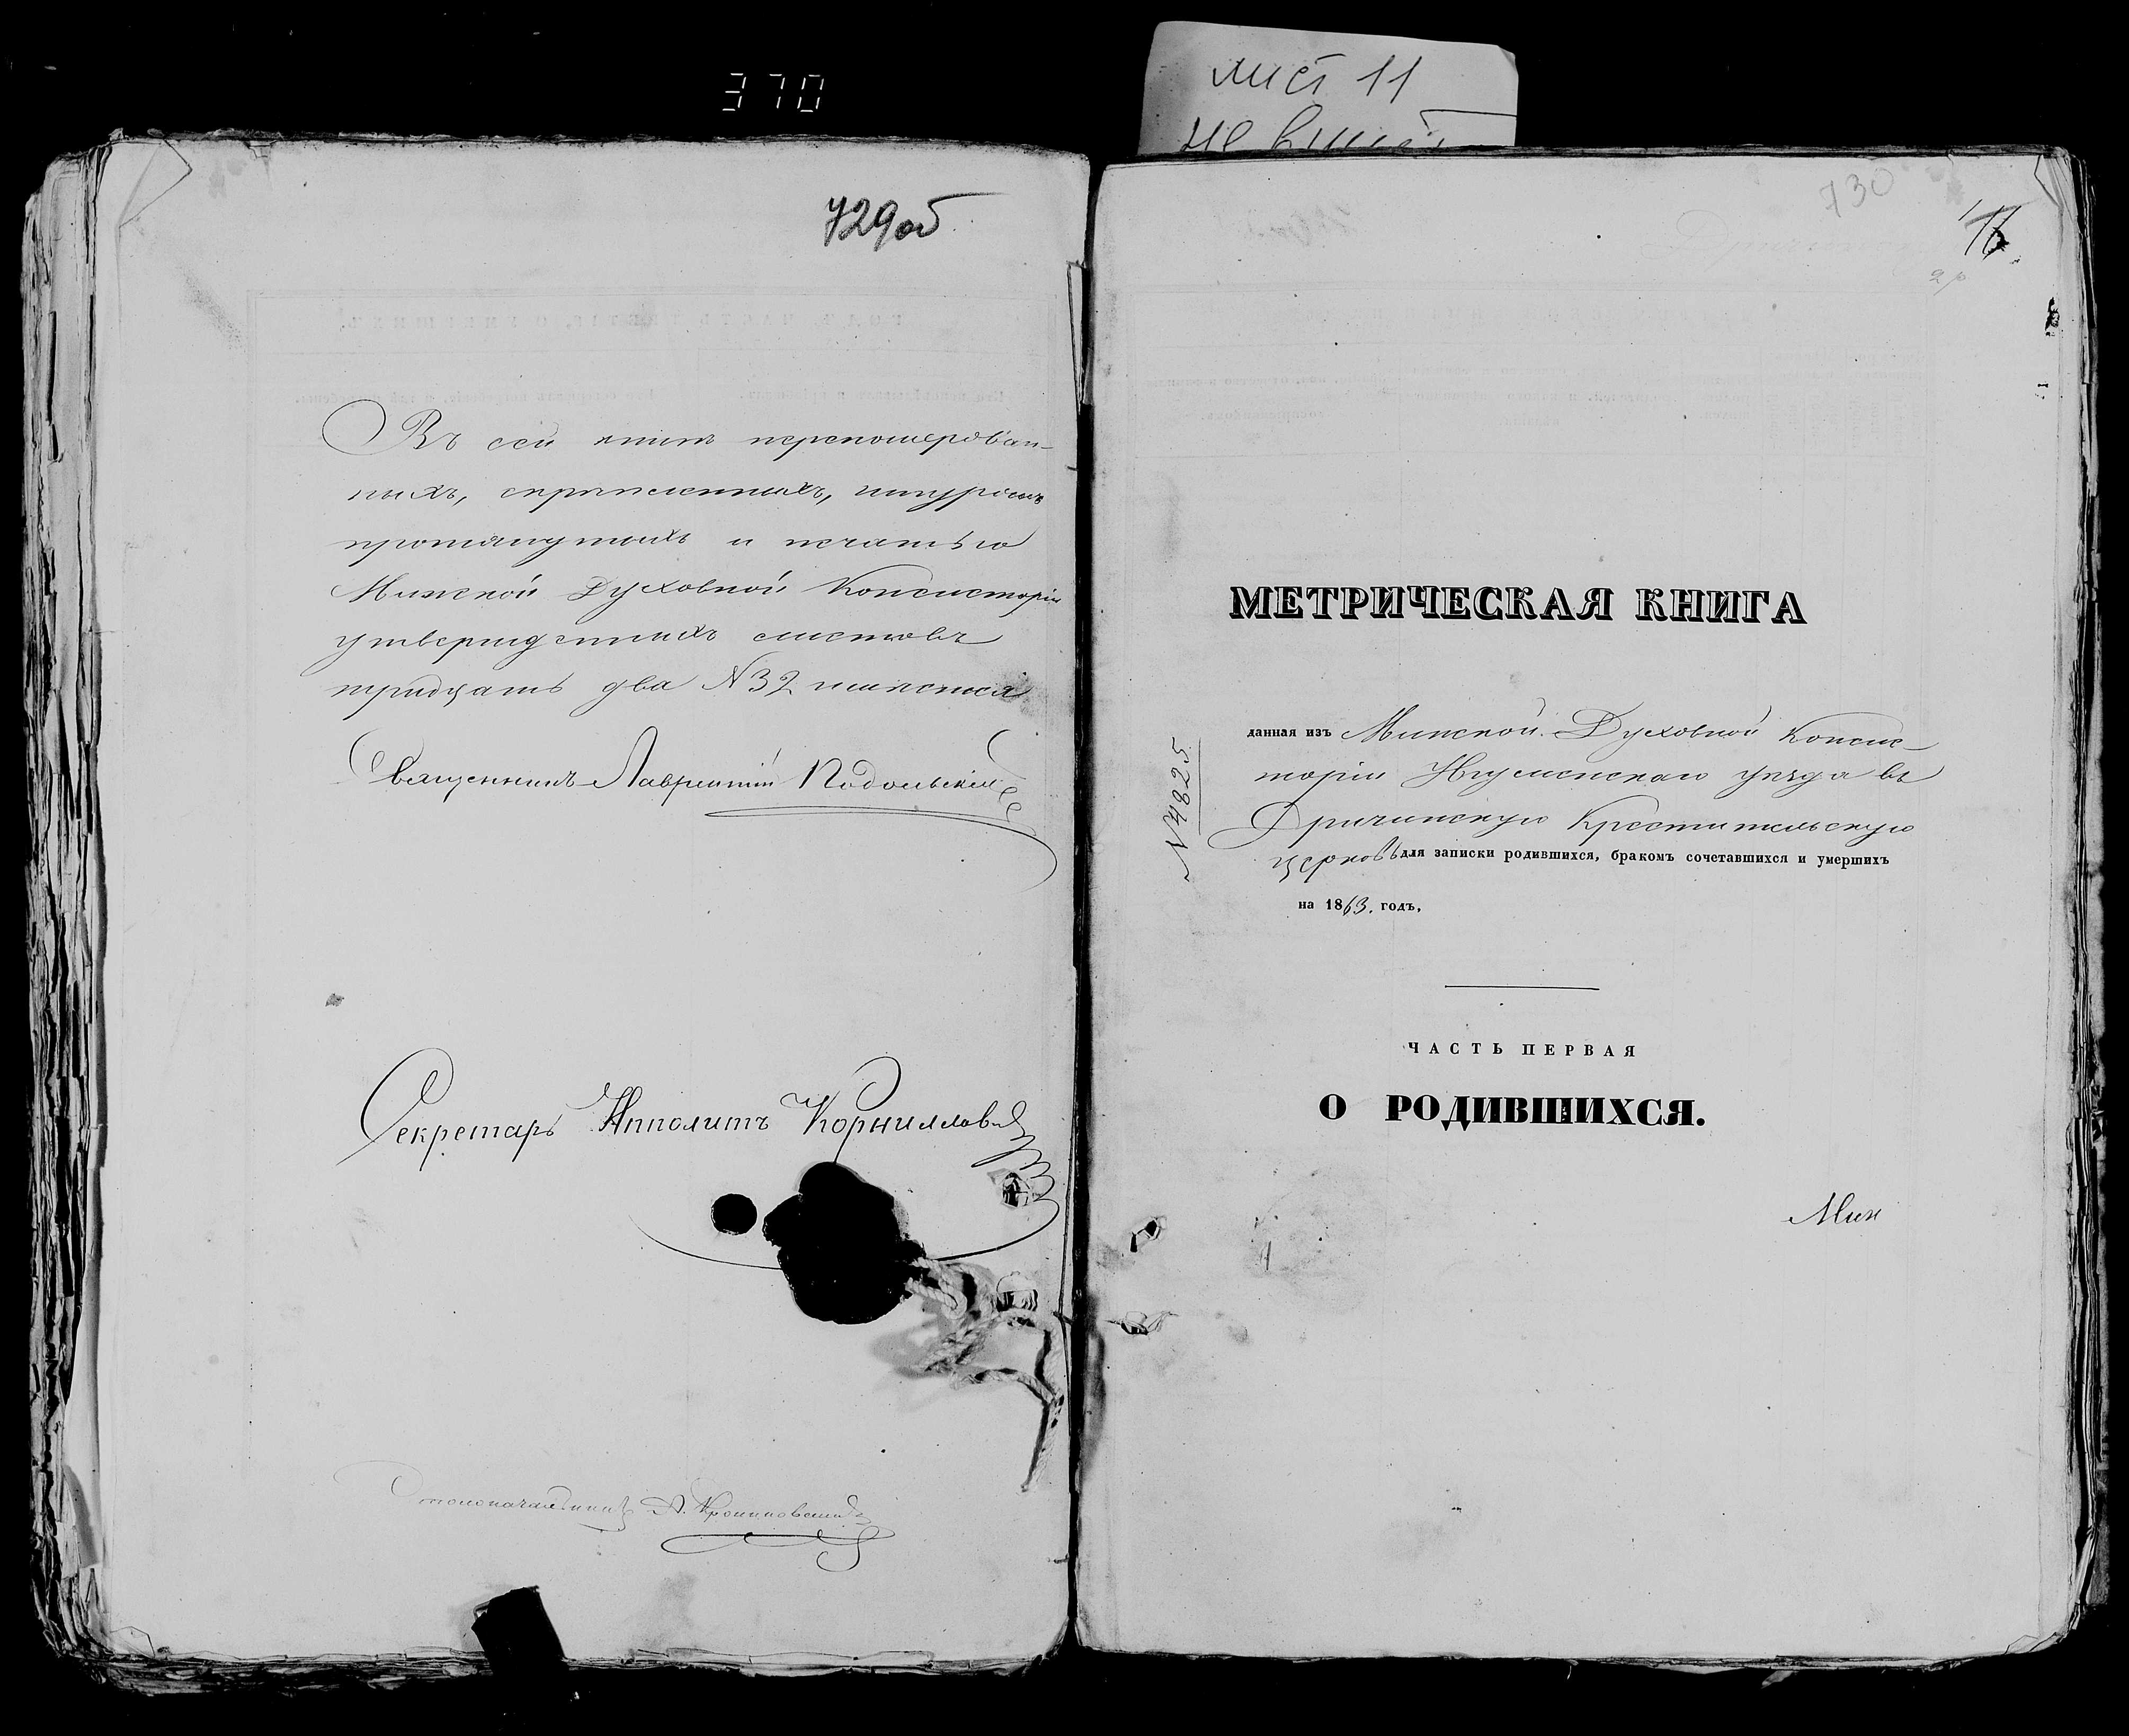 370
лист 11
не вшит
729об.
Въ сей книгѣ переномерован-
ныхъ, скрѣпленныхъ, шнуромъ
протянутыхъ и печатью
Минской Духовной Консисторіи
утвержденныхъ листовъ
тридцать два N 32
Священникъ Лаврентій Подольскій
Секретарь Ипполитъ Корниллов
Столоначальникъ
730
МЕТРИЧЕСКАЯ КНИГА
данная изъ Минской Духовной Консис-
торіи Игуменскаго уѣзда въ
Дричинскую Крестительскую
церковь для записки родившихся, бракомъ сочетавшихся и умершихъ
на 1863. годъ,
N 4825
ЧАСТЬ ПЕРВАЯ
О РОДИВШИХСЯ.
Мин